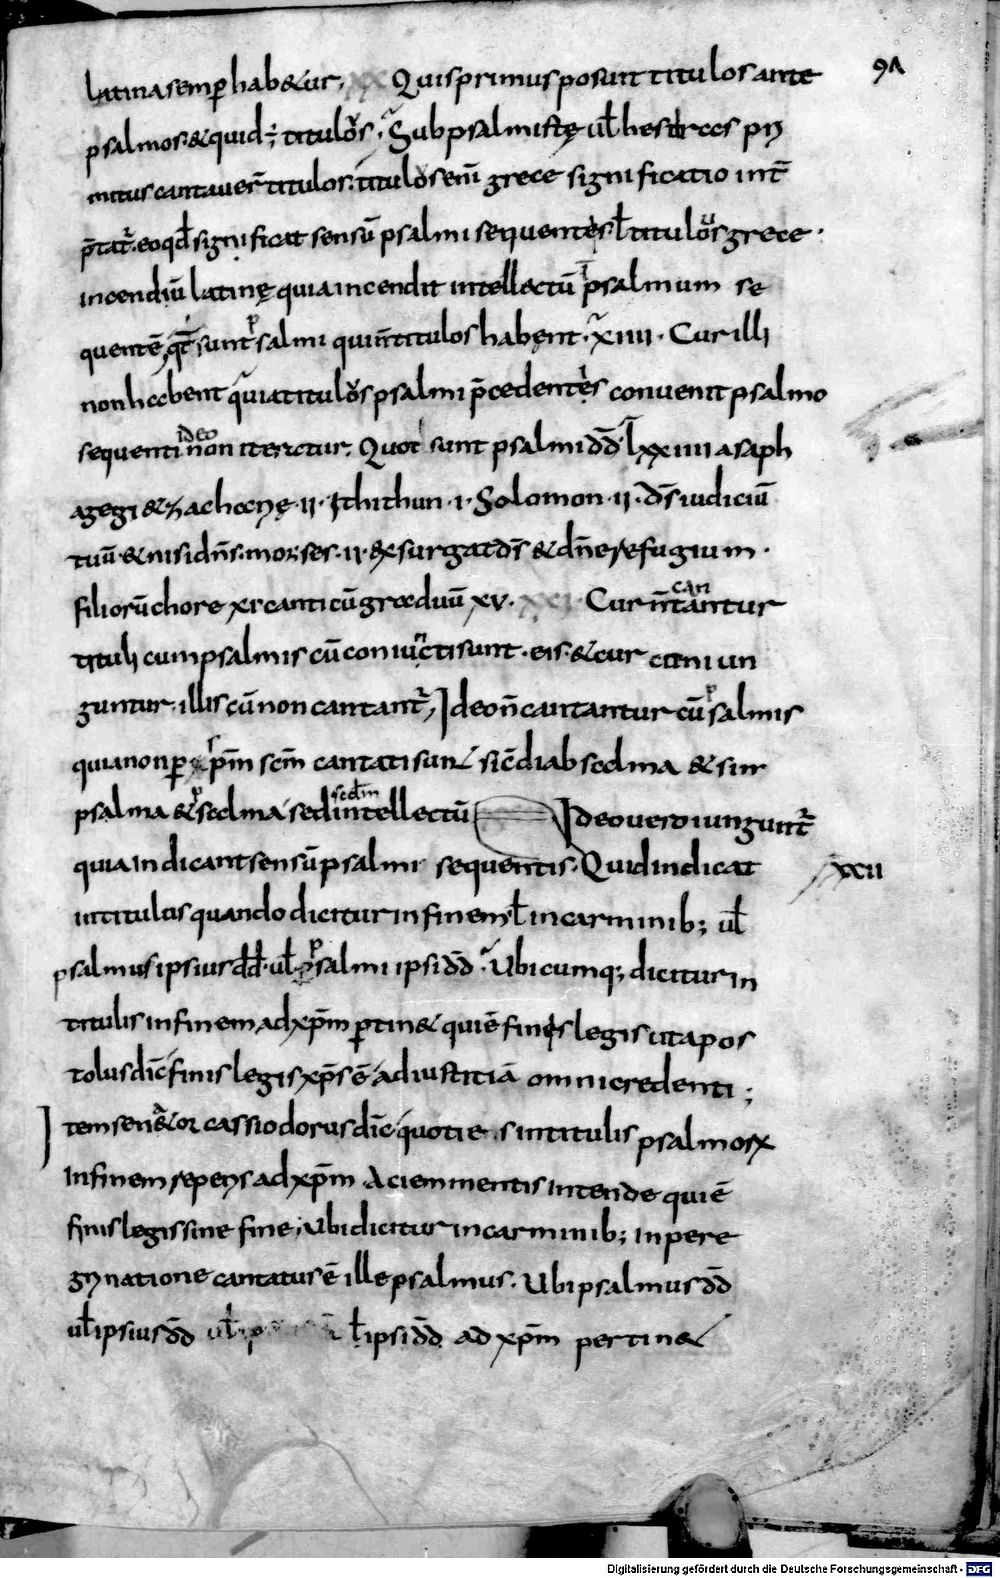 98
latina semp hab&ur, xx Quis primus posuit titulos ante
psalmos. & quid; titulos, Sub psalmistę ul hesdras pri
mitus cantauer̄ titulos. titulos enī grece significatio int̄
p̄tat̄. eo qd̄ significat sensū psalmi sequentes. l titulos grece
incendiū latinę quia incendit intellectū psalmum se
quentē, qt̄ sunt psalmi qui n̄ titulos habent. xiiii. Cur illi
non habent quia titulos psalmi p̄cedentes conuenit psalmo
sequenti ideo non iteratur. Quot sunt psalmi dd̄ lxxiiii asaph
agegi & zacharię ii. Ithithun. i. Solomon. ii. ds̄ iudiciū
tuū & nisi dn̄s. moises. ii. exsurgat ds̄ & dn̄e refugium.
filiorū chore xi canticū graduū xv. xxi Cur n̄ cantantur
tituli cum psalmis cū coniuncti sunt. eis. & cur coniun
guntur. illis cū non cantant̄, Ideo n̄ cantantur cū psalmis
quia non p xp̄m sem̄ cantati sunt sic̄ diabsalma & sin
psalma & psalma sed sedm intellectū Ideo uero iungunt̄
quia indicant sensū psalmi sequentis. Quid indicat xxii
in titulis quando dicitur in finem l in carminib; ul
psalmus ipsius dd̄. ul psalmi ipsi dd̄. Ubicumq; dicitur in
titulis in finem ad xp̄m ptin& qui ē finis legis ut apos
tolus dic̄ finis legis xp̄s ē ad iustitiā omni credenti;
Item senator cassiodorus dic̄ quotiens in titulis psalmorx
In finem reperis ad xp̄m aciem mentis intende qui ē
finis legis sine fine, Ubi dicitur in carminib; in pere
grinatione cantatus ē ille psalmus. Ubi psalmus dd̄
ul ipsius dd̄ l ipsi dd̄ ad xp̄m pertin&
Digitalisierung gefördert durch die Deutsche Forschungsgemeinschaft - DFG